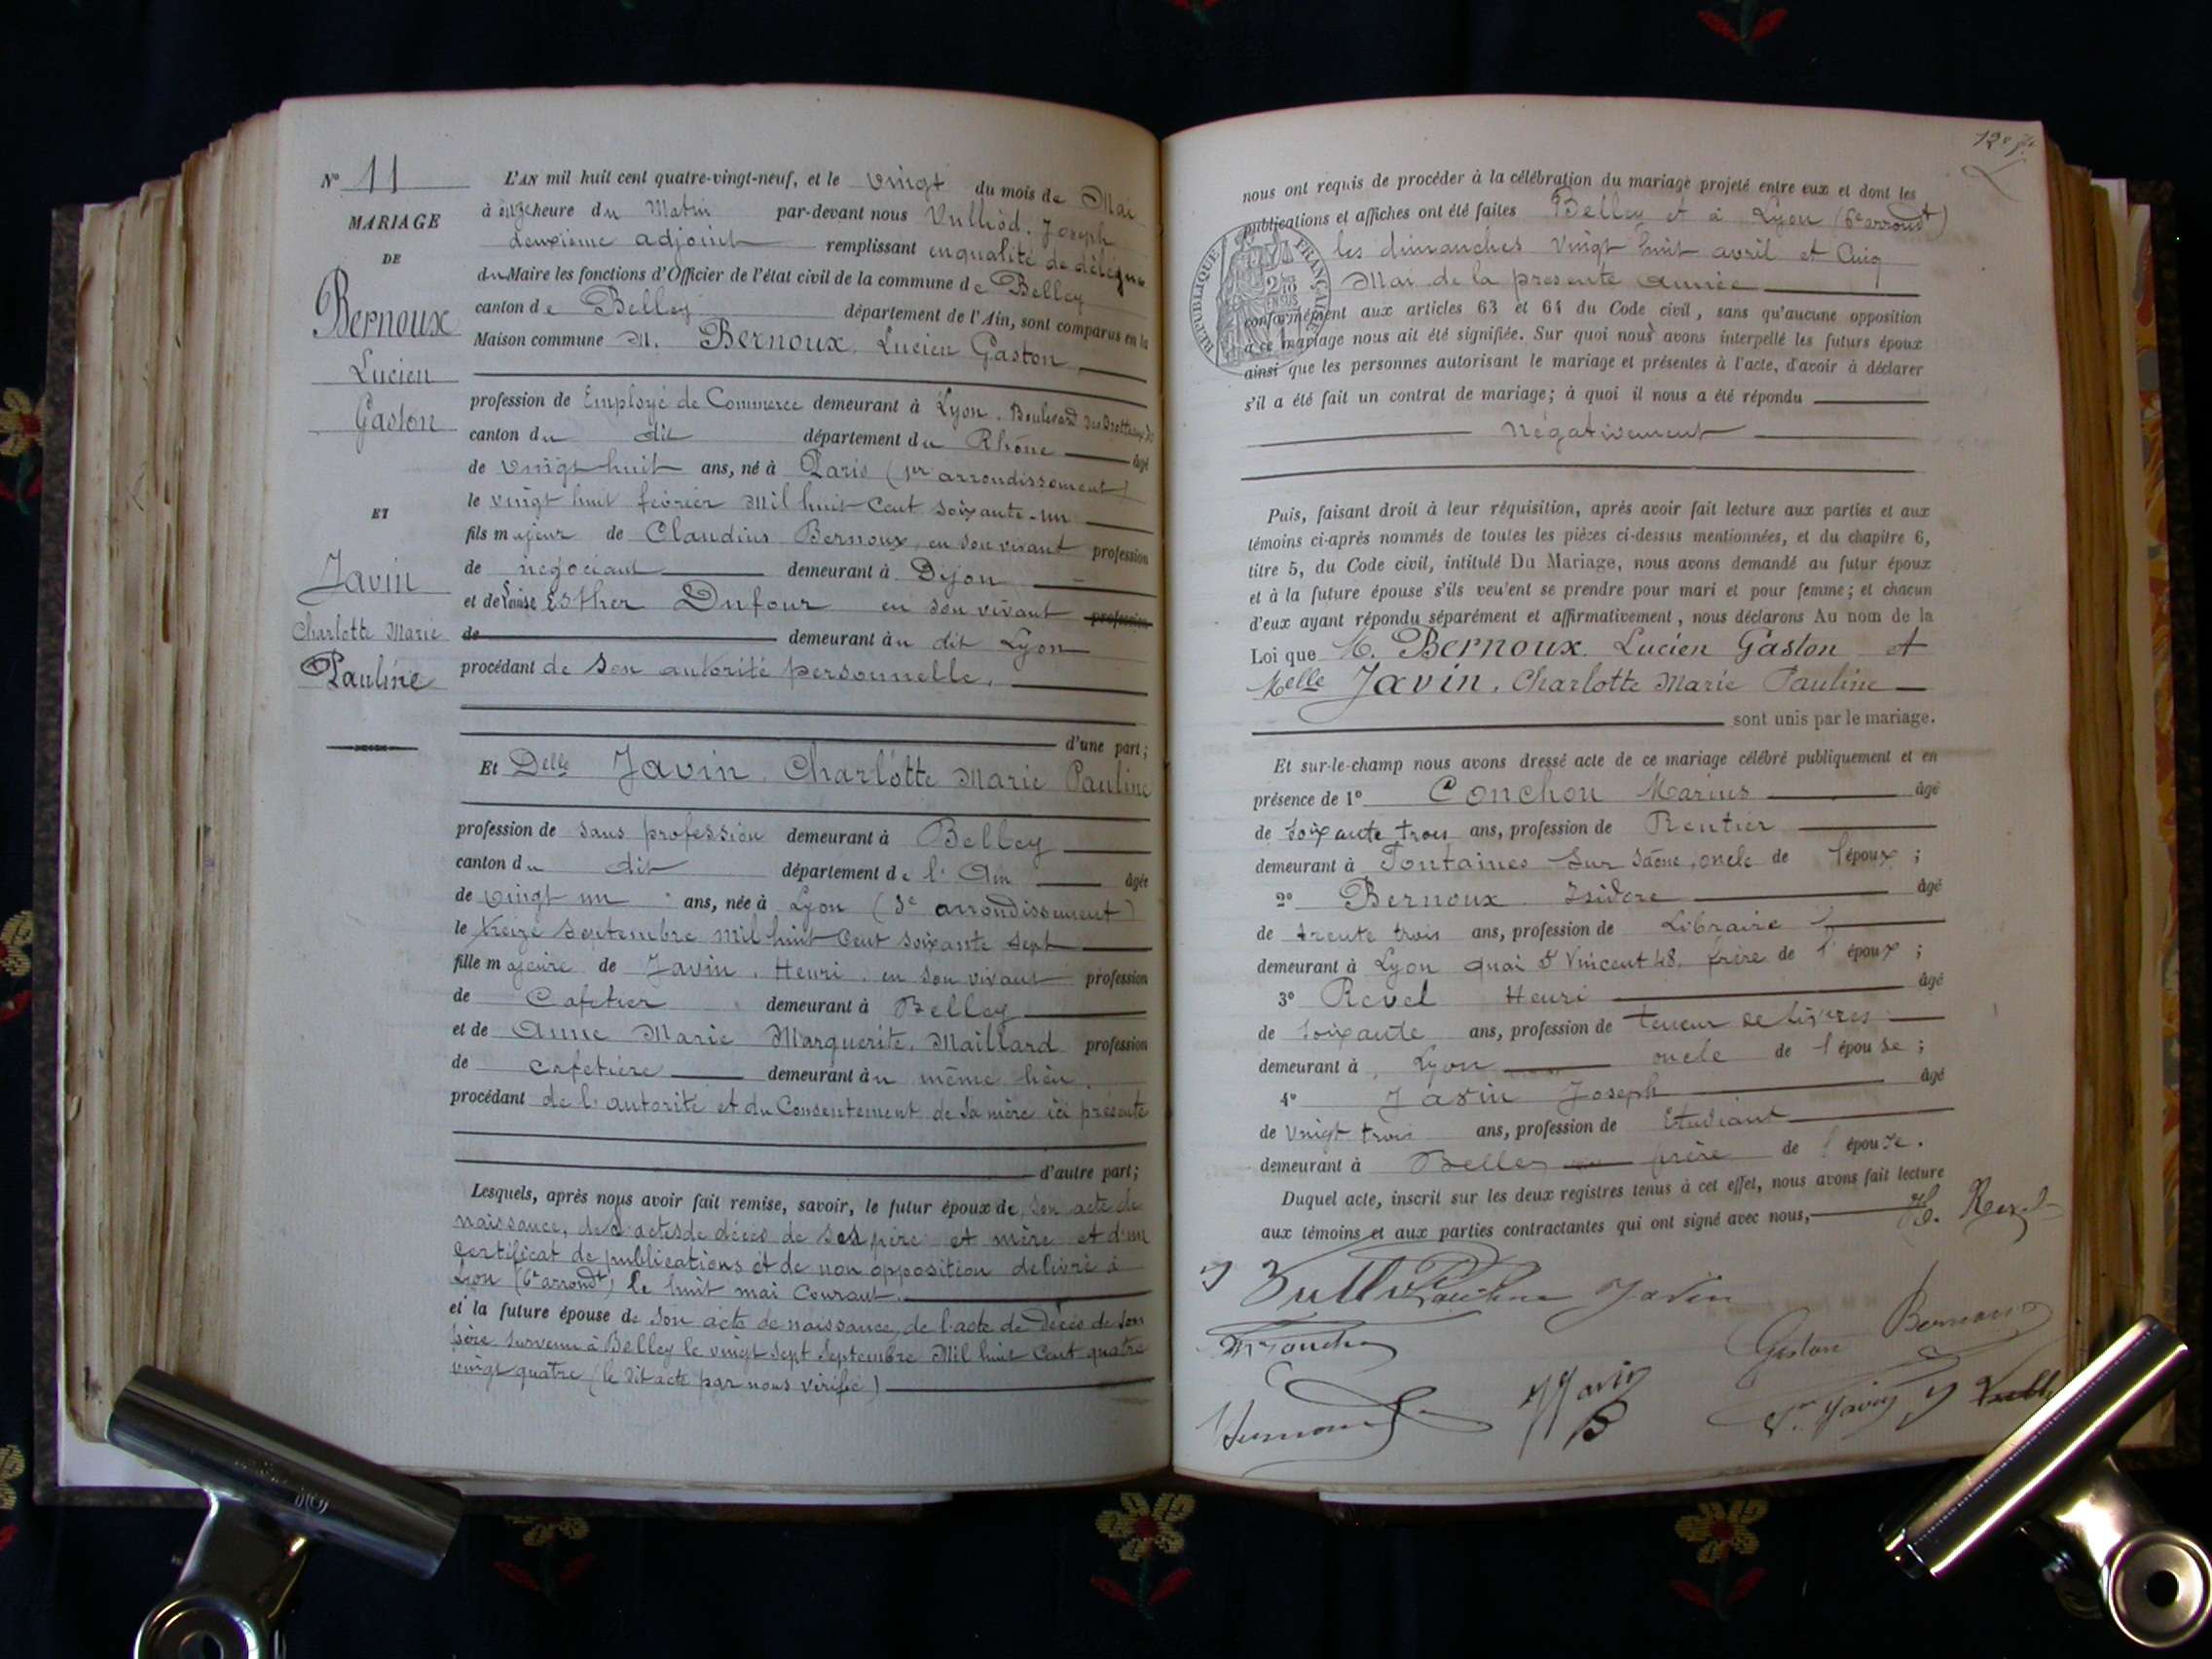 N° 11
MARIAGE
DE
Bernoux
Lucien
Gaston
ET
Javin
Charlotte Marie
Pauline
L'AN mil huit cent quatre-vingt-neuf, et le vingt du mois de Mai
à onze heure du Matin par-devant nous Vulliod, Joseph
deuxième adjoint remplissant en qualité de délégué
du Maire les fonctions d'Officier de l'état civil de la commune de Belley
canton de Belley département de l'Ain, sont comparus en la
Maison commune M. Bernoux, Lucien Gaston
profession de Employé de Commerce demeurant à Lyon, Boulevard des Brotteaux
canton du dit département du Rhône âgé
de vingt huit ans, né à Paris (1er arrondissement)
le vingt huit février Mil huit Cent soixante-un
fils majeur de Claudius Bernoux, en son vivant profession
de négociant demeurant à Dijon
et de Louise Esther Dufour en son vivant profession
de demeurant au dit Lyon
procédant de son autorité personnelle.
d'une part;
Et Delle Javin, Charlotte Marie Pauline
profession de sans profession demeurant à Belley
canton du dit département de l'Ain âgée
de vingt un ans, née à Lyon (3e arrondissement)
le treize Septembre Mil huit Cent soixante sept
fille majeure de Javin, Henri, en son vivant profession
de Cafetier demeurant à Belley
et de Anne Marie Marguerite Maillard profession
de cafetière demeurant au même lieu,
procédant de l'autorité et du Consentement de sa mère ici présente
d'autre part;
Lesquels, après nous avoir fait remise, savoir, le futur époux de son acte de
naissance, des actes de décès de ses père et mère et d'un
certificat de publications et de non opposition délivré à
Lyon (6e arrondt) le huit mai Courant.
et la future épouse de son acte de naissance, de l'acte de Décès de son
père survenu à Belley le vingt sept Septembre Mil huit Cent quatre
vingt quatre (le dit acte par nous vérifié)
nous ont requis de procéder à la célébration du mariage projeté entre eux et dont les
publications et affiches ont été faites Belley et à Lyon (6e arrondt)
les dimanches vingt huit avril et Cinq
Mai de la présente année
RÉPUBLIQUE FRANÇAISE
2/10 EN SUS
conformément aux articles 63 et 64 du Code civil, sans qu'aucune opposition
à ce mariage nous ait été signifiée. Sur quoi nous avons interpellé les futurs époux
ainsi que les personnes autorisant le mariage et présentes à l'acte, d'avoir à déclarer
s'il a été fait un contrat de mariage; à quoi il nous a été répondu
négativement
Puis, faisant droit à leur réquisition, après avoir fait lecture aux parties et aux
témoins ci-après nommés de toutes les pièces ci-dessus mentionnées, et du chapitre 6,
titre 5, du Code civil, intitulé Du Mariage, nous avons demandé au futur époux
et à la future épouse s'ils veulent se prendre pour mari et pour femme; et chacun
d'eux ayant répondu séparément et affirmativement, nous déclarons Au nom de la
Loi que M. Bernoux Lucien Gaston et
Melle Javin, Charlotte Marie Pauline
sont unis par le mariage.
Et sur-le-champ nous avons dressé acte de ce mariage célébré publiquement et en
présence de 1° Conchon Marius âgé
de soixante trois ans, profession de Rentier
demeurant à Fontaines sur Saône, oncle de l'époux;
2° Bernoux Isidore âgé
de trente trois ans, profession de Libraire
demeurant à Lyon quai St Vincent 48, frère de l'époux;
3° Revel Henri âgé
de soixante ans, profession de teneur de livres
demeurant à Lyon oncle de l'épouse;
4° Javin Joseph âgé
de vingt trois ans, profession de Etudiant
demeurant à Belley frère de l'épouse.
Duquel acte, inscrit sur les deux registres tenus à cet effet, nous avons fait lecture
aux témoins et aux parties contractantes qui ont signé avec nous, H. Revel
Pauline Javin
Gaston Bernoux
Bernoux
Javin